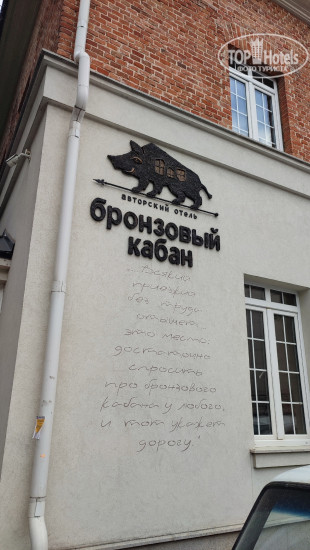 TOP Hotels
ФОТО ТУРИСТА
авторский отель
бронзовый
кабан
"...Всякий
приезжий
без труда
отыщет
это место:
достаточно
спросить
про бронзового
кабана у любого,
и тот укажет
дорогу."